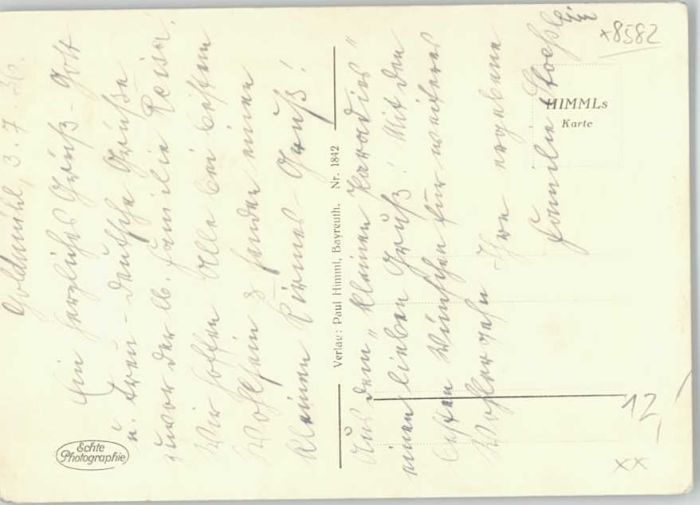 Goldmühl, 3. 7.
Ein herzliches Grüß-Gott
u. treu-deutsche Grüße
zuvor der lb. Familie
Wir hoffen Alle bei bestem
Wohlsein & senden einen
kleinen Gruß!
Aus dem „kleinen Paradies"
einen lieben Gruß! Mit den
besten Wünschen für weiteres
Wohlergehn Ihre ergebene
Familie
Verlag: Paul Himml, Bayreuth. Nr. 1842
HIMMLs
Karte
Echte
Photographie
×8582
12,
××